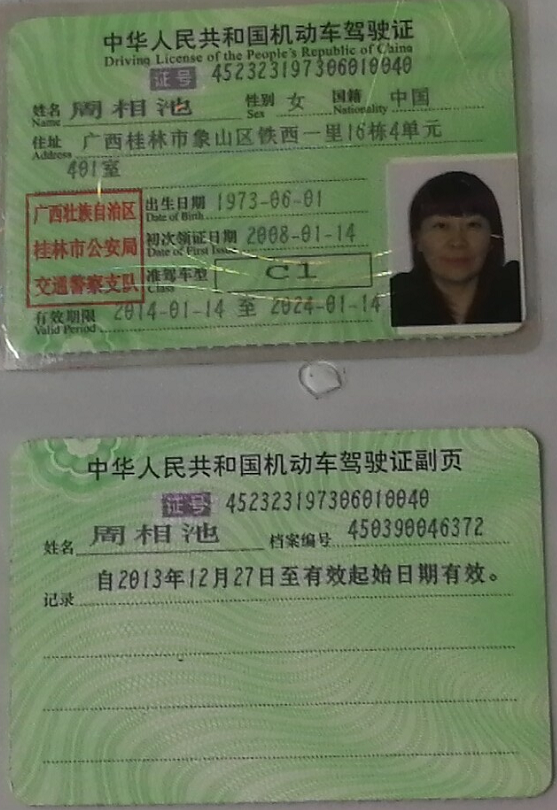 中华人民共和国机动车驾驶证
Driving License of the People's Republic of China
证号 452323197306010040
姓名 周相池 性别 女 国籍 中国
Name Sex Nationality
住址 广西桂林市象山区铁西一里16栋4单元
Address
401室
广西壮族自治区
桂林市公安局
交通警察支队
出生日期 1973-06-01
Date of Birth
初次领证日期 2008-01-14
Date of First Issue
准驾车型 C1
Class
有效期限 2014-01-14 至 2024-01-14
Valid Period
中华人民共和国机动车驾驶证副页
证号 452323197306010040
姓名 周相池 档案编号 450390046372
记录 自2013年12月27日至有效起始日期有效。